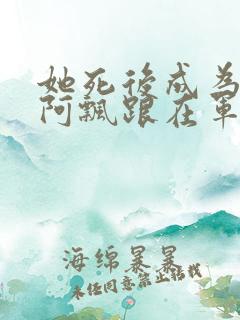 她死後成為
阿飄跟在軍
海绵暴暴
未经同意禁止转载